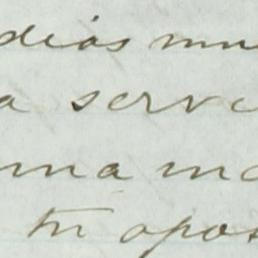 dias mu
a serv
una m
tu apos